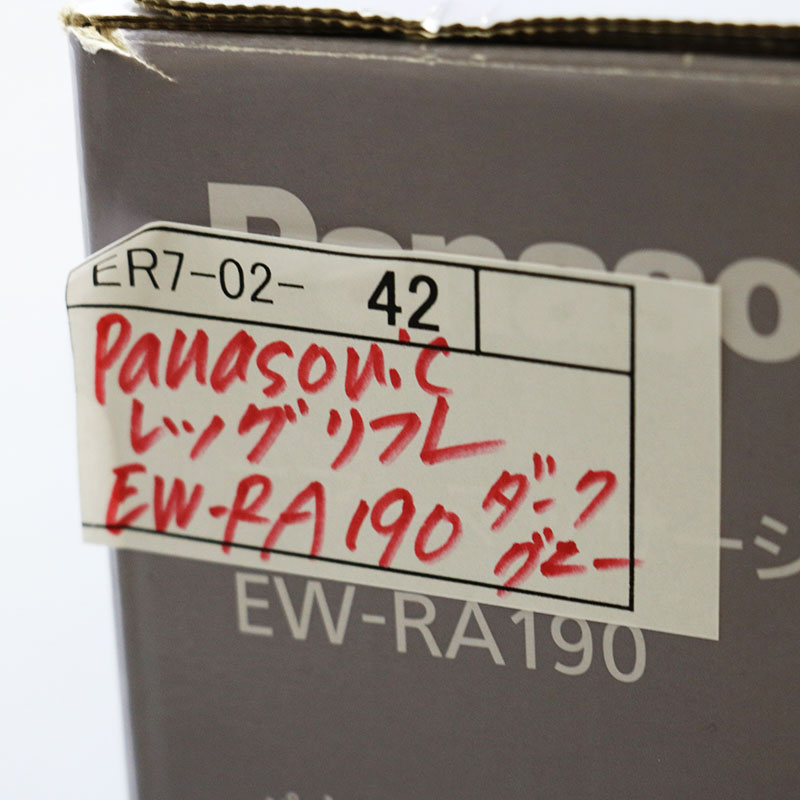 Panaso
ER7-02- 42
Panasonic
レッグリフレ
EW-RA190 ダーク
グレー
ージ
EW-RA190